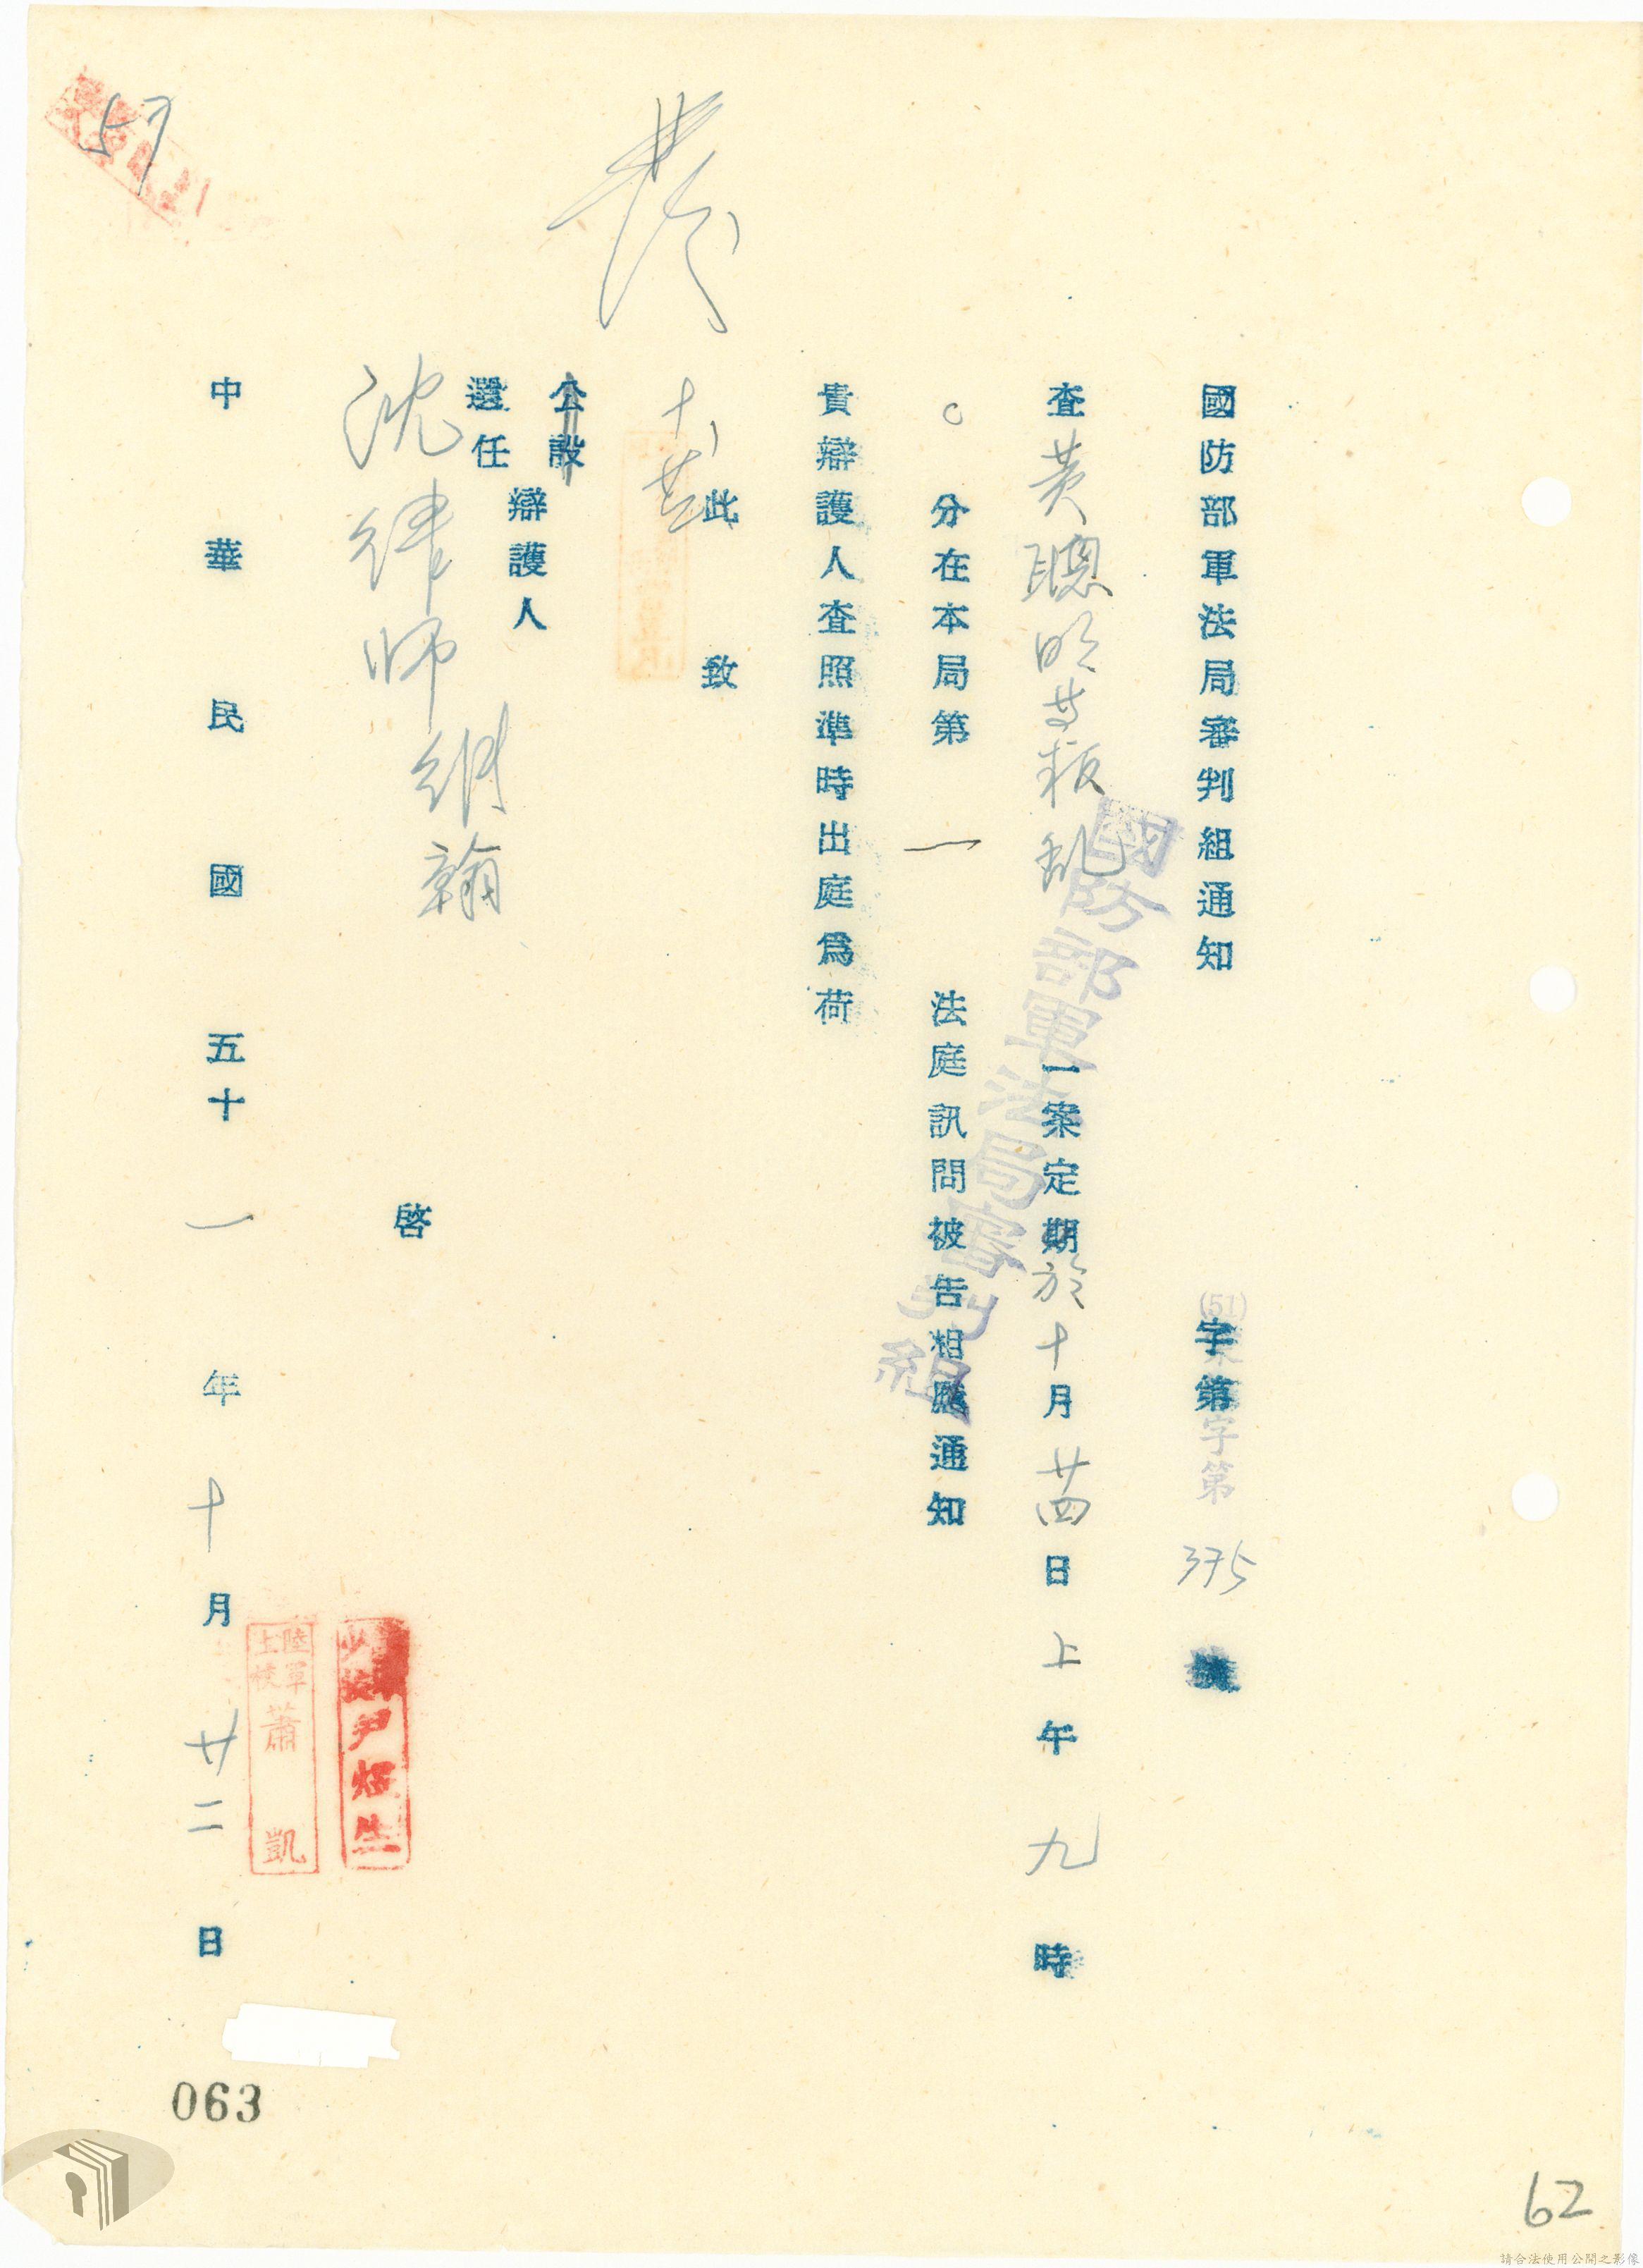 國防部軍法局審判組通知 (51) 字第 字第 375 號
查黃聰明等叛亂一案定期於十月廿四日上午九時
〇分在本局第一法庭訊問被告相應通知
貴辯護人查照準時出庭為荷
此致
公設
選任
辯護人
沈律師
啓
中華民國五十一年十月廿二日
國防部軍法局審判組
陸軍
上校
蕭凱
少校
尹
生
57
063
62
請合法使用公開之影像